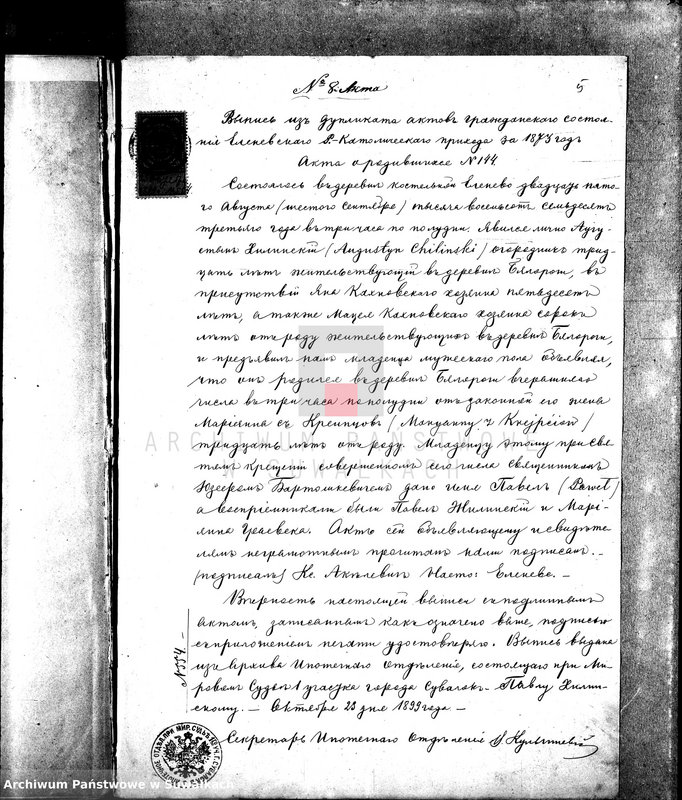 № 8. Акта
5
Выпись изъ дупликата актовъ гражданскаго состоя-
нія Еленевскаго Р.-Католическаго прихода за 1873 годъ
Акта о родившихся № 144.
Состоялось въ деревнѣ костельной Еленево двадцать пята-
го Августа (шестого Сентября) тысяча восемьсотъ семьдесятъ
третьяго года въ три часа по полудни. Явился лично Авгу-
стинъ Хилинскій (Augustyn Chiliński) огородникъ трид-
цать лѣтъ жительствующій въ деревнѣ въ
присутствіи Яна Кахновскаго хозяина пятьдесятъ
лѣтъ, а также Кахновскаго хозяина сорокъ
лѣтъ отъ роду жительствующихъ въ деревнѣ
и предъявилъ намъ младенца мужескаго пола объявляя,
что онъ родился въ деревнѣ вчерашняго
числа въ три часа пополудни отъ законной его жены
Маріянны съ (Maryanny z
тридцать лѣтъ отъ роду. Младенцу этому при свя-
томъ крещеніи совершенномъ сего числа священникомъ
Бартошкевичемъ дано имя Павелъ (Paweł)
а воспріемниками были Павелъ Хилинскій и Марі-
янна Актъ сей объявляющему и свидѣте-
лямъ неграмотнымъ прочитанъ нами подписанъ. –
(подписалъ) Кс. Наст: Еленево. –
Вѣрность настоящей выписи съ подлиннымъ
актомъ, записаннымъ какъ означено выше, подписью
съ приложеніемъ печати удостовѣряю. Выпись выдана
изъ Архива Ипотечнаго Отдѣленія, состоящаго при Ми-
ровомъ Судьѣ 1 участка города Сувалокъ – Павлу Хилин-
скому. – Октября 23 дня 1899 года –
№ 554. –
Секретарь Ипотечнаго Отдѣленія
ARCHIWUM PAŃSTWOWE
W SUWAŁKACH
Archiwum Państwowe w Suwałkach